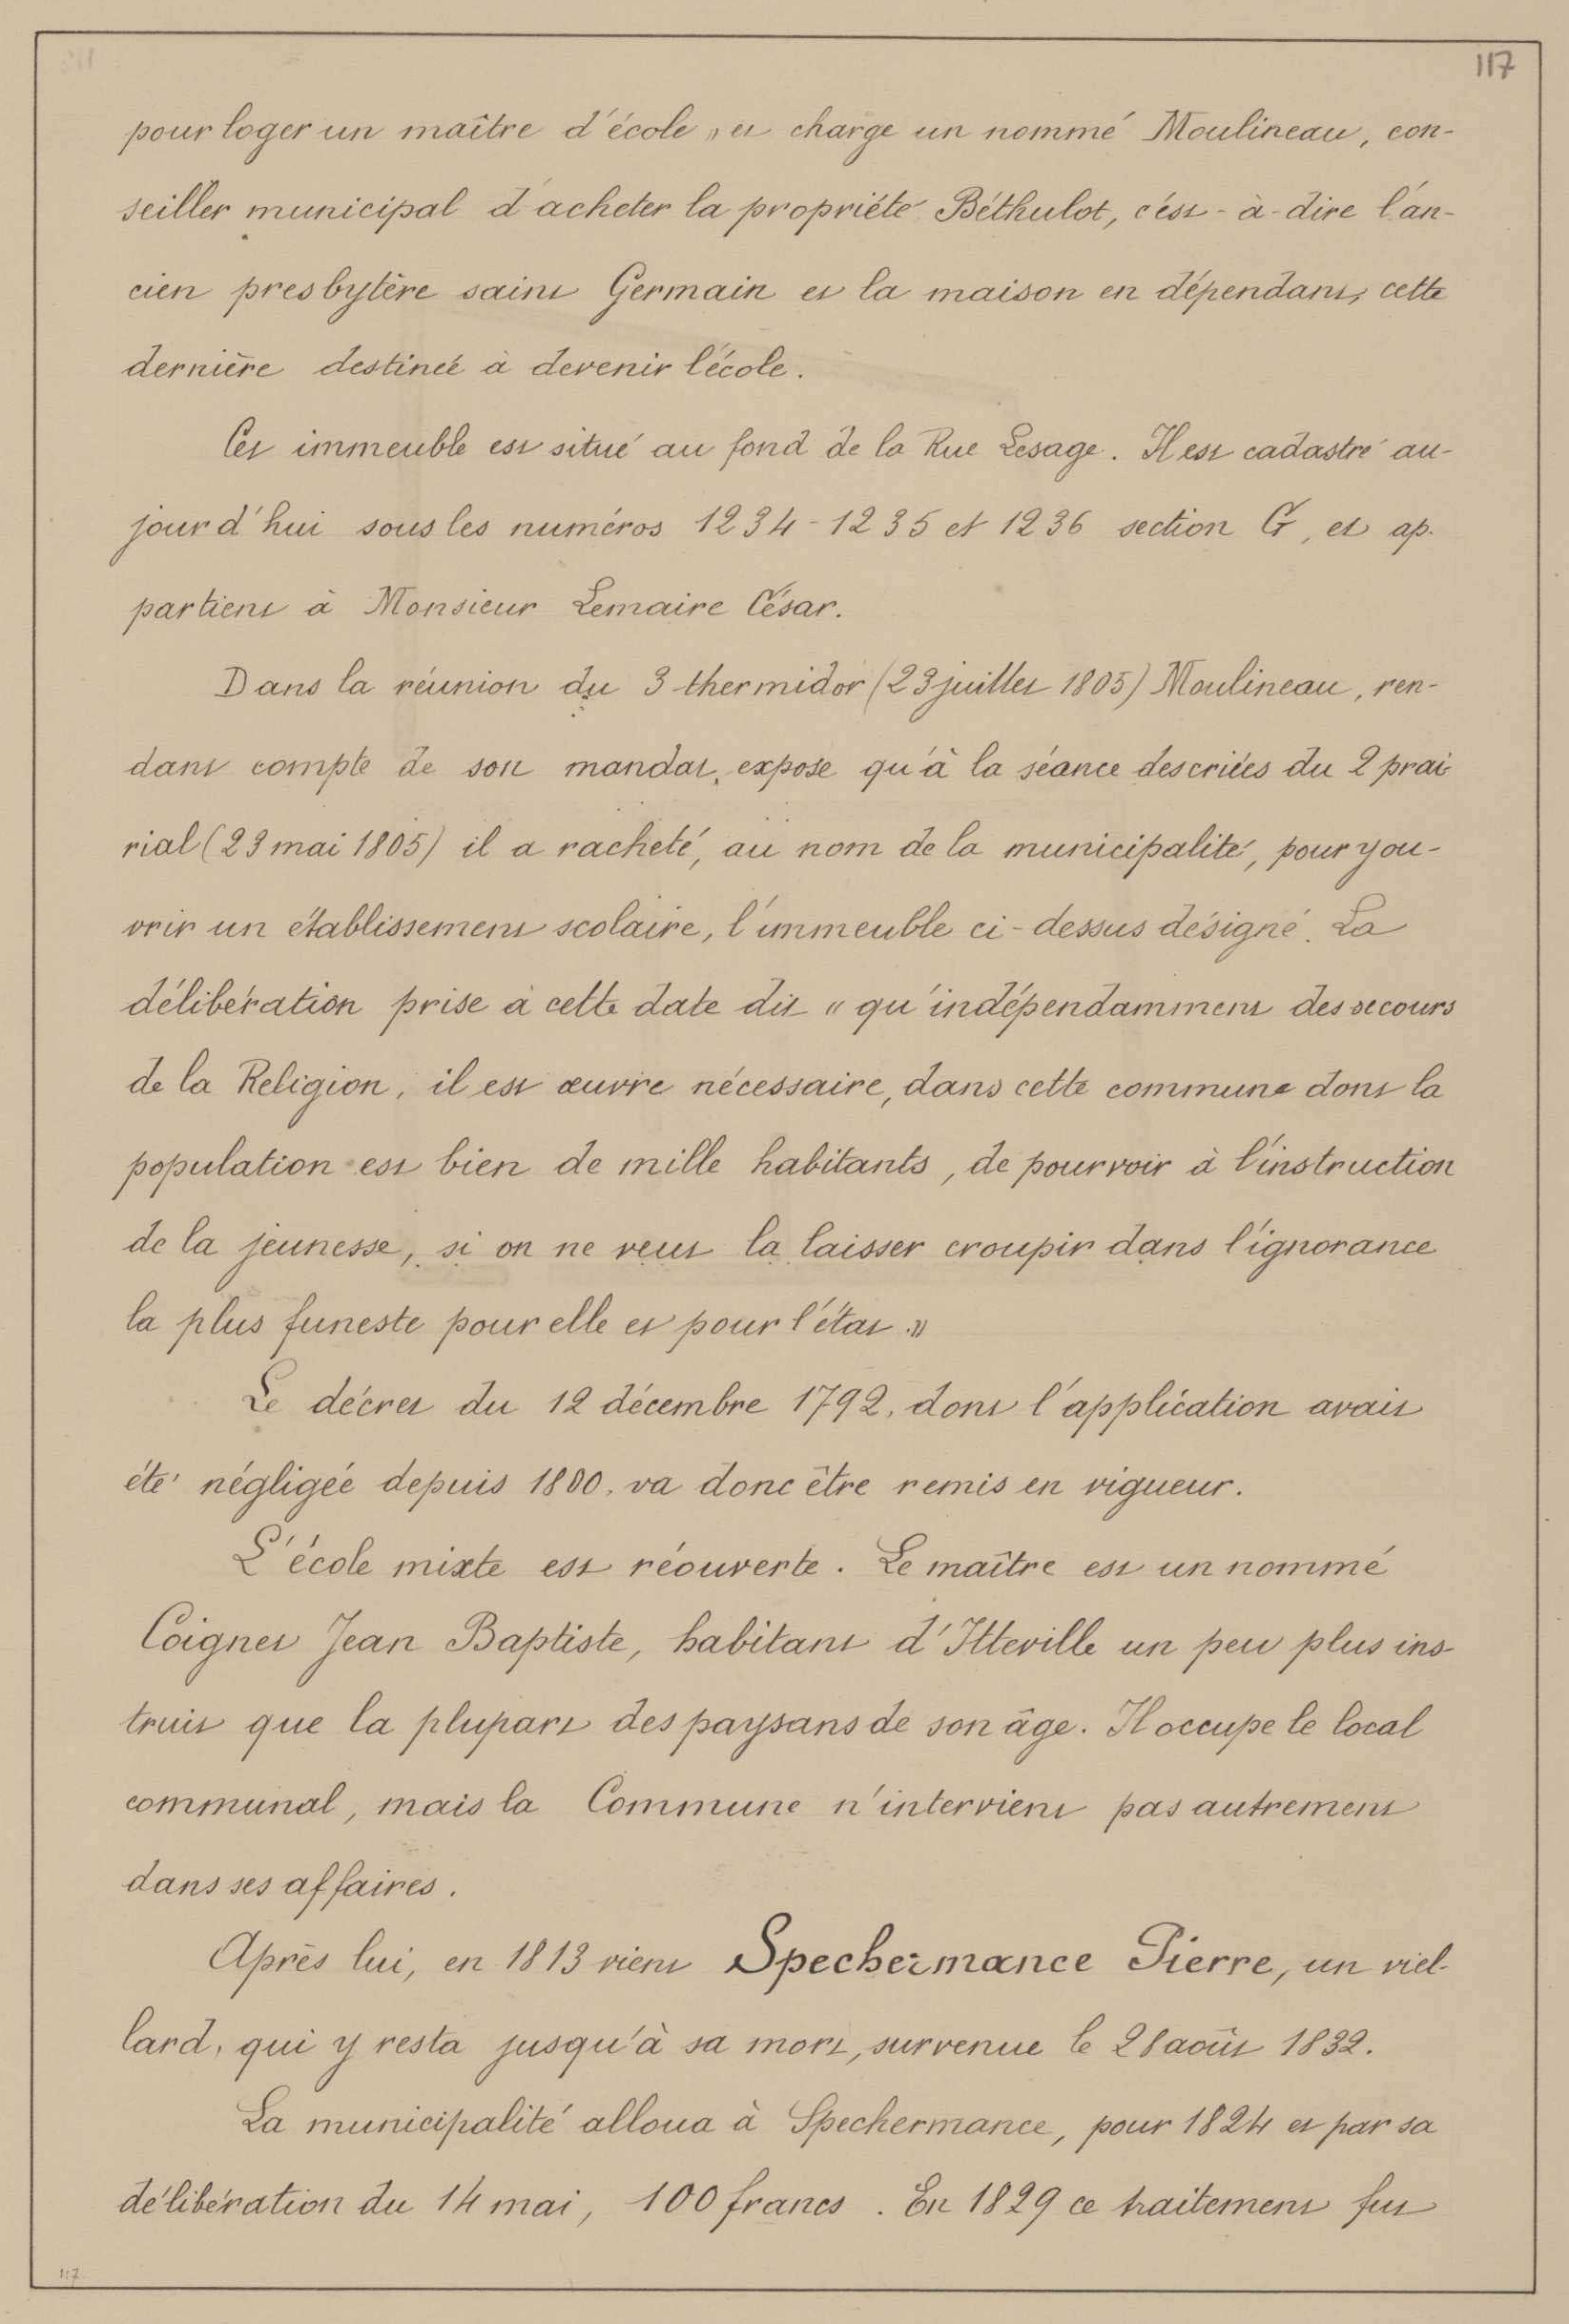 117
pour loger un maître d'école » et charge un nommé Moulineau, con-
seiller municipal d'acheter la propriété Béthulot, c'est-à-dire l'an-
cien presbytère saint Germain et la maison en dépendant, cette
dernière destinée à devenir l'école.
Cet immeuble est situé au fond de la Rue Lesage. Il est cadastré au-
jourd'hui sous les numéros 1234-1235 et 1236 section G, et ap-
partient à Monsieur Lemaire César.
Dans la réunion du 3 thermidor (23 juillet 1805) Moulineau, ren-
dant compte de son mandat, expose qu'à la séance des criées du 2 prai-
rial (23 mai 1805) il a racheté, au nom de la municipalité, pour y ou-
vrir un établissement scolaire, l'immeuble ci-dessus désigné. La
délibération prise à cette date dit « qu'indépendamment des secours
de la Religion, il est œuvre nécessaire, dans cette commune dont la
population est bien de mille habitants, de pourvoir à l'instruction
de la jeunesse, si on ne veut la laisser croupir dans l'ignorance
la plus funeste pour elle et pour l'état.»
Le décret du 12 décembre 1792, dont l'application avait
été négligée depuis 1800, va donc être remis en vigueur.
L'école mixte est réouverte. Le maître est un nommé
Coignet Jean Baptiste, habitant d'Itteville un peu plus ins-
truit que la plupart des paysans de son âge. Il occupe le local
communal, mais la Commune n'intervient pas autrement
dans ses affaires.
Après lui, en 1813 vient Spechermance Pierre, un viel-
lard, qui y resta jusqu'à sa mort, survenue le 28 août 1832.
La municipalité alloua à Spechermance, pour 1824 et par sa
délibération du 14 mai, 100 francs. En 1829 ce traitement fut
117